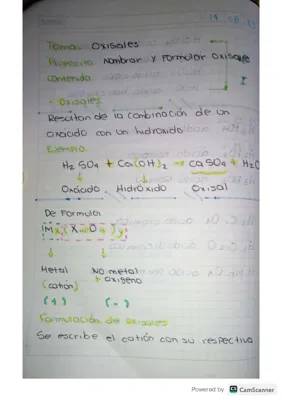 19 08
Tema: Oxisales
Proposito: Nombrar y Formular oxisales
Contenido
- Oxisales
Resultan de la combinación de un
oxácido con un hidroxido
Ejemplo
H₂SO₄ + Ca(OH)₂ → CaSO₄ + H₂O
Oxácido Hidróxido Oxisal
De Formula
Metal No metal
(catión) + oxigeno
(+) (-)
Formulación de oxisales
Se escribe el catión con su respectiva
Powered by CS CamScanner